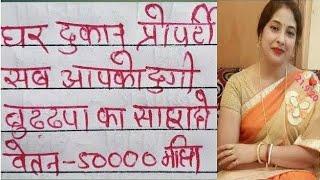 घर दुकान प्रोपर्टी
सब आपको दुगी
बुढढपा का साझाहो
वेतन-50000 महिना